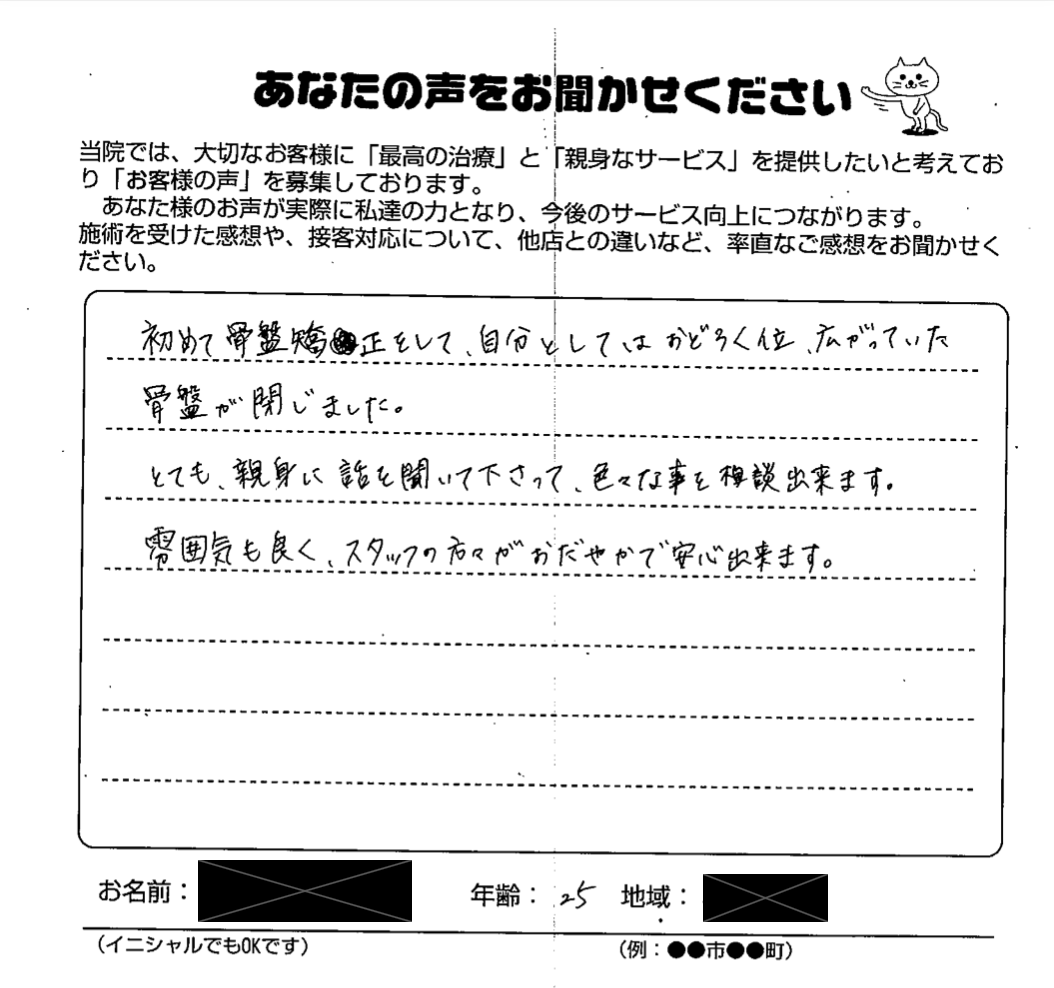 あなたの声をお聞かせください
当院では、大切なお客様に「最高の治療」と「親身なサービス」を提供したいと考えてお
り「お客様の声」を募集しております。
あなた様のお声が実際に私達の力となり、今後のサービス向上につながります。
施術を受けた感想や、接客対応について、他店との違いなど、率直なご感想をお聞かせく
ださい。
初めて骨盤矯正をして、自分としてはおどろく位、広がっていた
骨盤が閉じました。
とても、親身に話を聞いて下さって、色々な事を相談出来ます。
雰囲気も良く、スタッフの方々がおだやかで安心出来ます。
お名前： 年齢： 25 地域：
（イニシャルでもOKです） （例：●●市●●町）